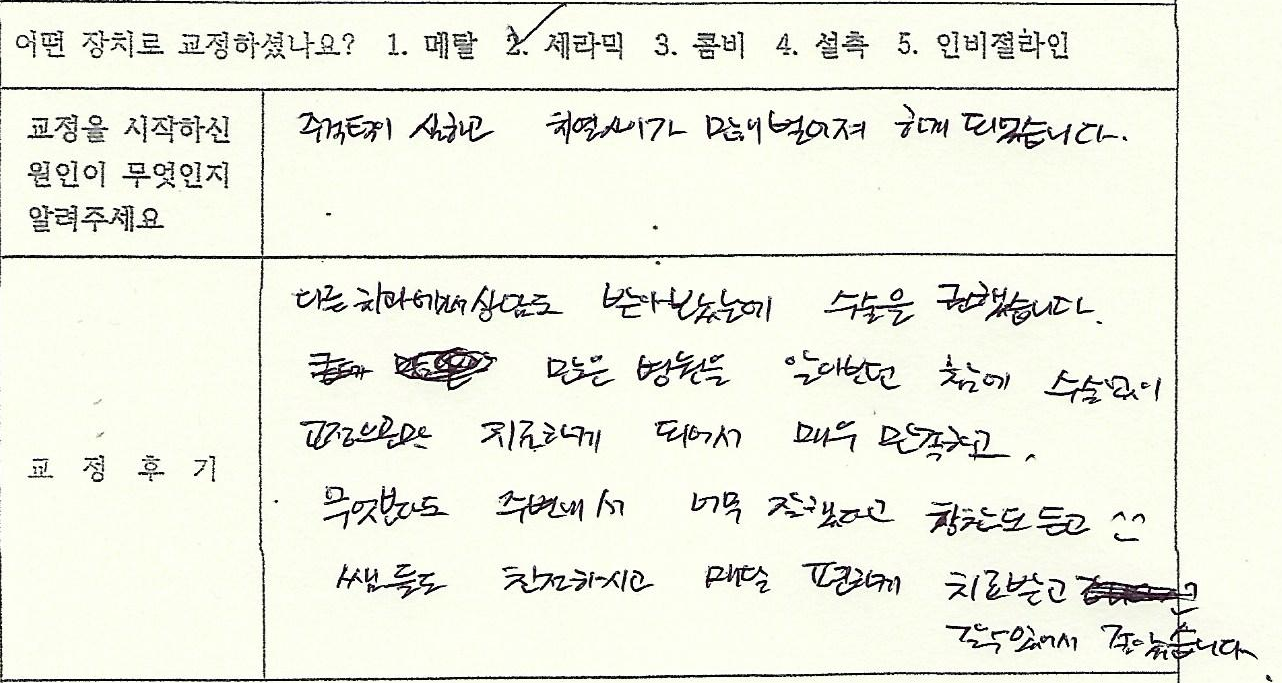 어떤 장치로 교정하셨나요? 1. 메탈 2. 세라믹 3. 콤비 4. 설측 5. 인비절라인
교정을 시작하신
원인이 무엇인지
알려주세요
주걱턱이 심하고 치열사이가 많이 벌어져 하게 되었습니다.
교 정 후 기
다른 치과에서 상담도 받아봤는데 수술을 권했습니다.
많은 병원을 알아보던 참에 수술없이
교정으로만 치료하게 되어서 매우 만족하고.
무엇보다도 주변에서 너무 잘했다고 칭찬도 듣고 ^^
쌤들도 친절하시고 매달 편하게 치료받고
갈 수 있어서 좋았습니다